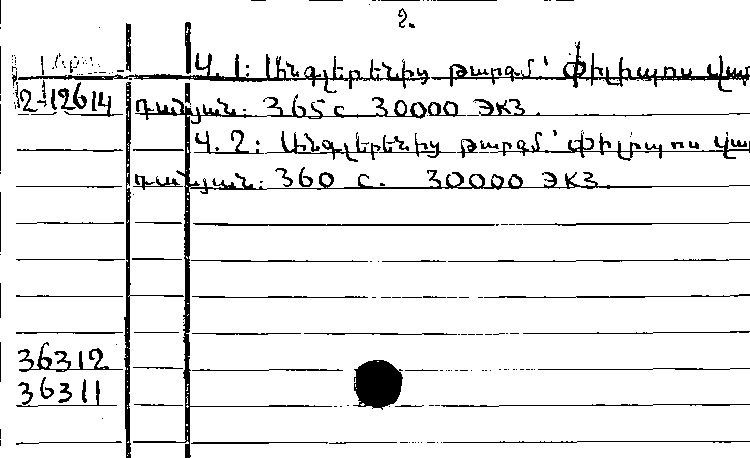 2.
Ч. 1: Անգլերենից թարգմ.՝ Փիլիպոս Վար
2-12614 դանյան: 365 с. 30000 экз.
Ч. 2: Անգլերենից թարգմ.՝ Փիլիպոս Վար
դանյան: 360 с. 30000 экз.
36312
36311